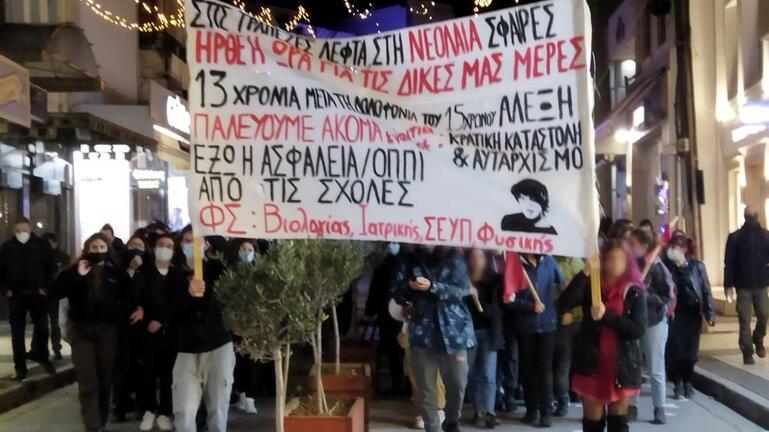 ΣΤΙΣ ΤΡΑΠΕΖΕΣ ΛΕΦΤΑ ΣΤΗ ΝΕΟΛΑΙΑ ΣΦΑΙΡΕΣ
ΗΡΘΕ Η ΩΡΑ ΓΙΑ ΤΙΣ ΔΙΚΕΣ ΜΑΣ ΜΕΡΕΣ
13 ΧΡΟΝΙΑ ΜΕΤΑ ΤΗ ΔΟΛΟΦΟΝΙΑ ΤΟΥ 15ΧΡΟΝΟΥ ΑΛΕΞΗ
ΠΑΛΕΥΟΥΜΕ ΑΚΟΜΑ ΕΝΑΝΤΙΑ ΣΕ: ΚΡΑΤΙΚΗ ΚΑΤΑΣΤΟΛΗ
& ΑΥΤΑΡΧΙΣΜΟ
ΕΞΩ Η ΑΣΦΑΛΕΙΑ/ΟΠΠΙ
ΑΠΟ ΤΙΣ ΣΧΟΛΕΣ
ΦΣ: Βιολογίας, Ιατρικής, ΣΕΥΠ, Φυσικής